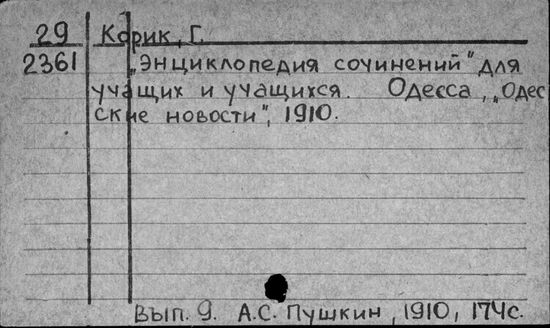 29 Корик, Г.
2361 „Энциклопедия сочинений" для
учащих и учащихся. Одесса, „Одес
ские новости", 1910.
Вып. 9. А.С. Пушкин, 1910, 174с.